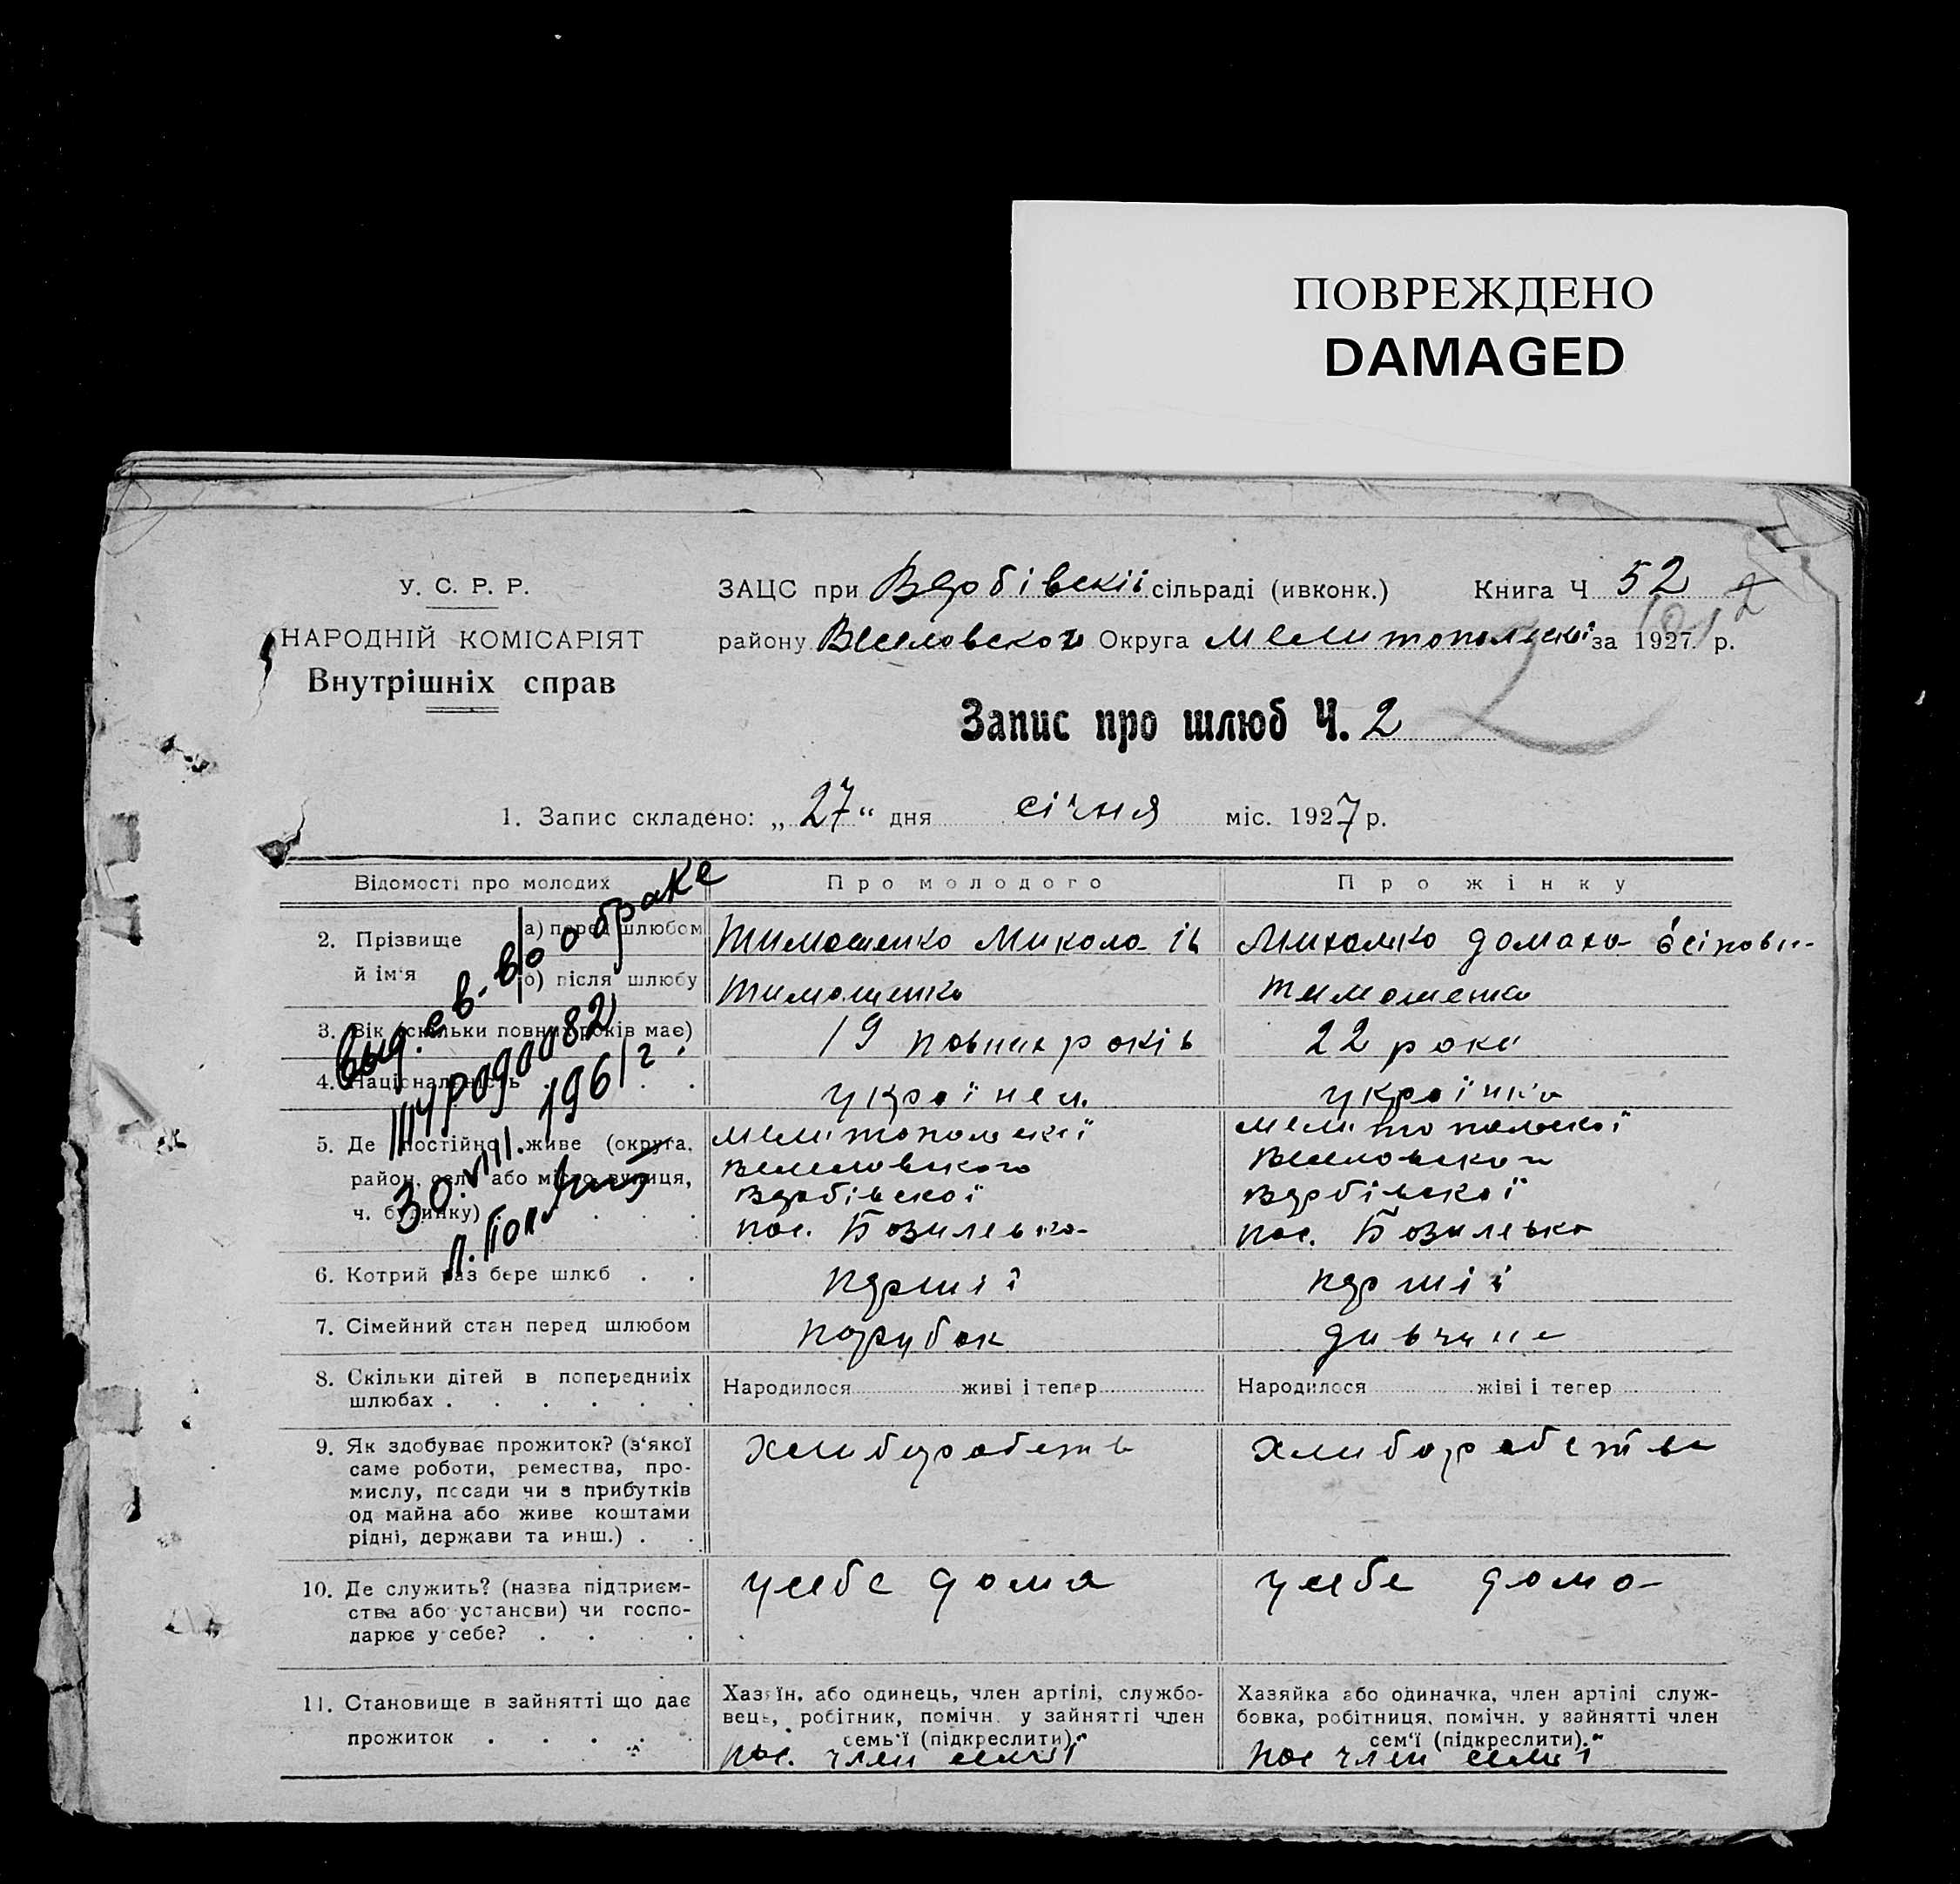 ПОВРЕЖДЕНО
DAMAGED
У. С. Р. Р.
НАРОДНІЙ КОМІСАРІЯТ
Внутрішніх справ
ЗАЦС при Вербівскій сільраді (ивконк.) Книга Ч 52
району Веселовского Округа Мелитопольскої за 1927 р.
2
Запис про шлюб Ч. 2
1. Запис складено: „ 27 “ дня січня міс. 1927 р.
Відомості про молодих Про молодого Про жінку
2. Прізвище й ім'я
а) перед шлюбом Тимошенко Микола Ів Михалко Домаха Осіпови-
б) після шлюбу Тимошенко Тимошенко
3. Вік (скільки повних років має) 19 повних років 22 роки
4. Національність українец українка
5. Де постійно живе (округа, Мелитопольскої Мелитопольскої
район, село або місто, вулиця, Веселовского Веселовского
ч. будинку) Вербівскої Вербівскої
пос. Бозилевка пос. Бозилевка
6. Котрий раз бере шлюб перший перший
7. Сімейний стан перед шлюбом парубок дивчина
8. Скільки дітей в попередніх Народилося живі і тепер Народилося жіві і тепер
шлюбах
9. Як здобуває прожиток? (з'якої хлиборобств хлиборобства
саме роботи, ремества, про-
мислу, посади чи з прибутків
од майна або живе коштами
рідні, держави та инш.)
10. Де служить? (назва підприєм- у себе дома у себе дома
ства або установи) чи госпо-
дарює у себе?
11. Становище в зайнятті що дає Хазяїн, або одинець, член артілі, службо- Хазяйка або одиначка, член артілі служ-
прожиток вець, робітник, помічн. у зайнятті член бовка, робітниця, помічн. у зайнятті член
семь'ї (підкреслити).“ сем'ї (підкреслити).“
пос. член семьї пос член семьї
выд. св-во о браке
196 г.
30.VIII.